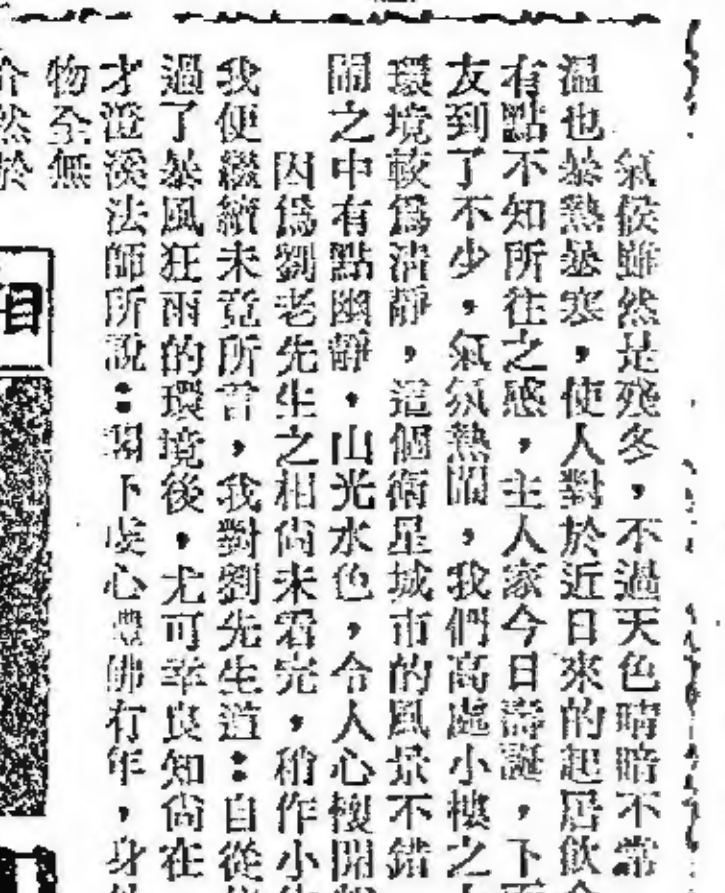 氣候雖然是殘冬，不過天色晴暗不常
溫也暴熱暴寒，使人對於近日來的起居飲
有點不知所往之感，主人家今日壽誕，下
友到了不少，氣氛熱鬧，我們高處小樓之
環境較爲清靜，這個衛星城市的風景不錯
鬧之中有點幽靜，山光水色，令人心
因爲劉老先生之相尚未看完，稍作小
我便繼續未竟所言，我對劉先生道：自從
過了暴風狂雨的環境後，尤可幸良知尚在
才澄溪法師所說：閣下虔心禮佛有年，身
物全無
介然於
相